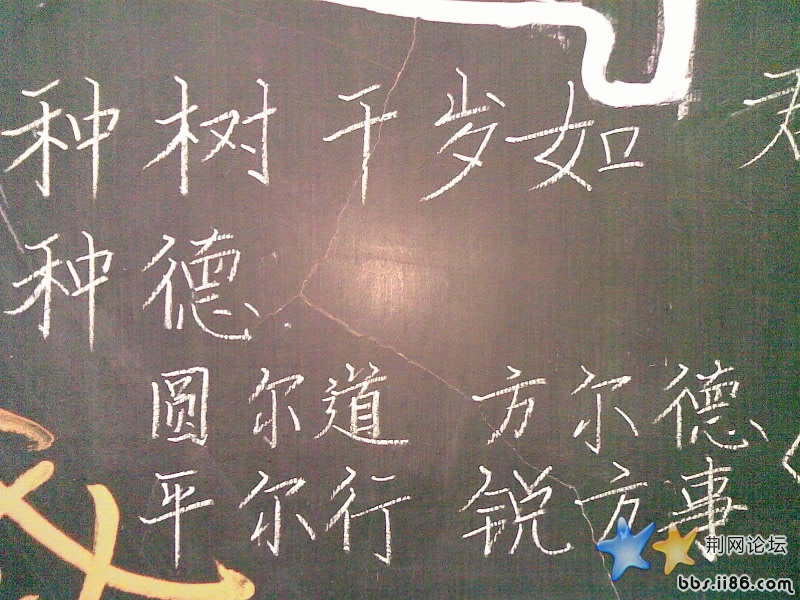 种树干岁如
种德
圆尔道 方尔德
平尔行 锐方事
荆网论坛
bbs.ii86.com